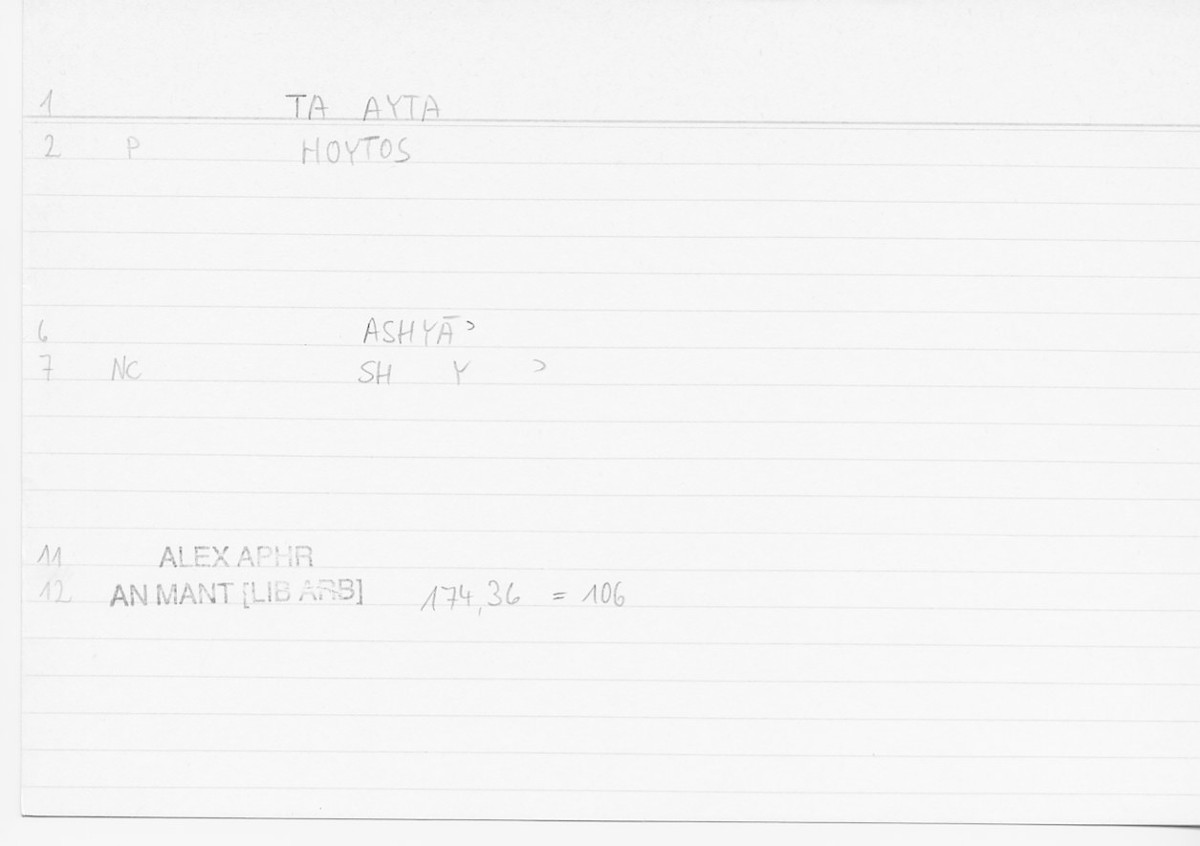 1 TA AYTA
2 P HOYTOS
6 ASHYĀʾ
7 NC SH Y ʾ
11 ALEX APHR
12 AN MANT [LIB ARB] 174,36 = 106